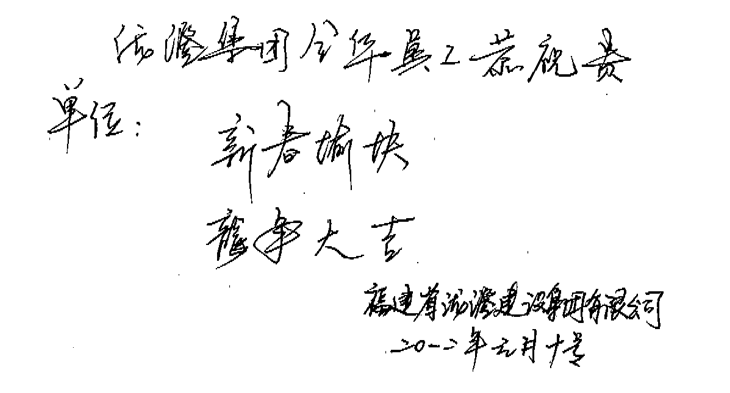 泷澄集团全体员工恭祝贵
单位：
新春愉快
龍年大吉
福建省泷澄建设集团有限公司
二0一二年元月十号